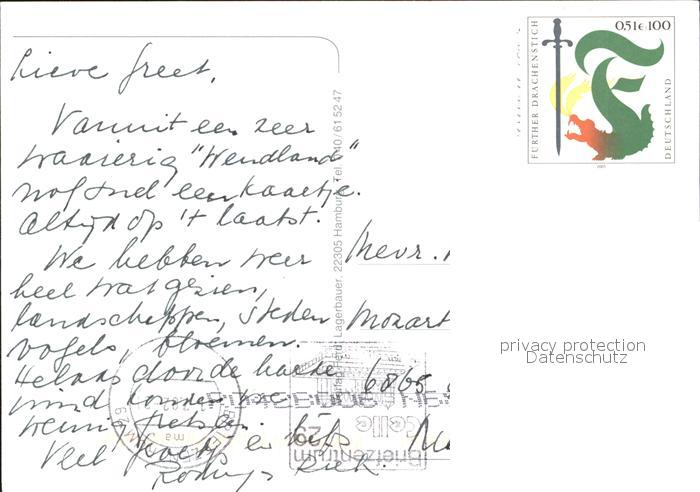 Lieve Greet,
Vanuit een zeer
waaierig "Wendland"
nog snel een kaartje.
Altijd op 't laatst.
We hebben weer
heel wat gezien,
landschappen, steden
vogels, bloemen.
Helaas door de harde
wind konden we
weinig fietsen.
Veel groetjes en liefs
Rick.
Mevr.
Mozart
6865
Lagerbauer, 22305 Hamburg, Tel. 040/61 52 47
FURTHER DRACHENSTICH
0,51€ 100
DEUTSCHLAND
2001
Briefzentrum
29
celle
privacy protection
Datenschutz